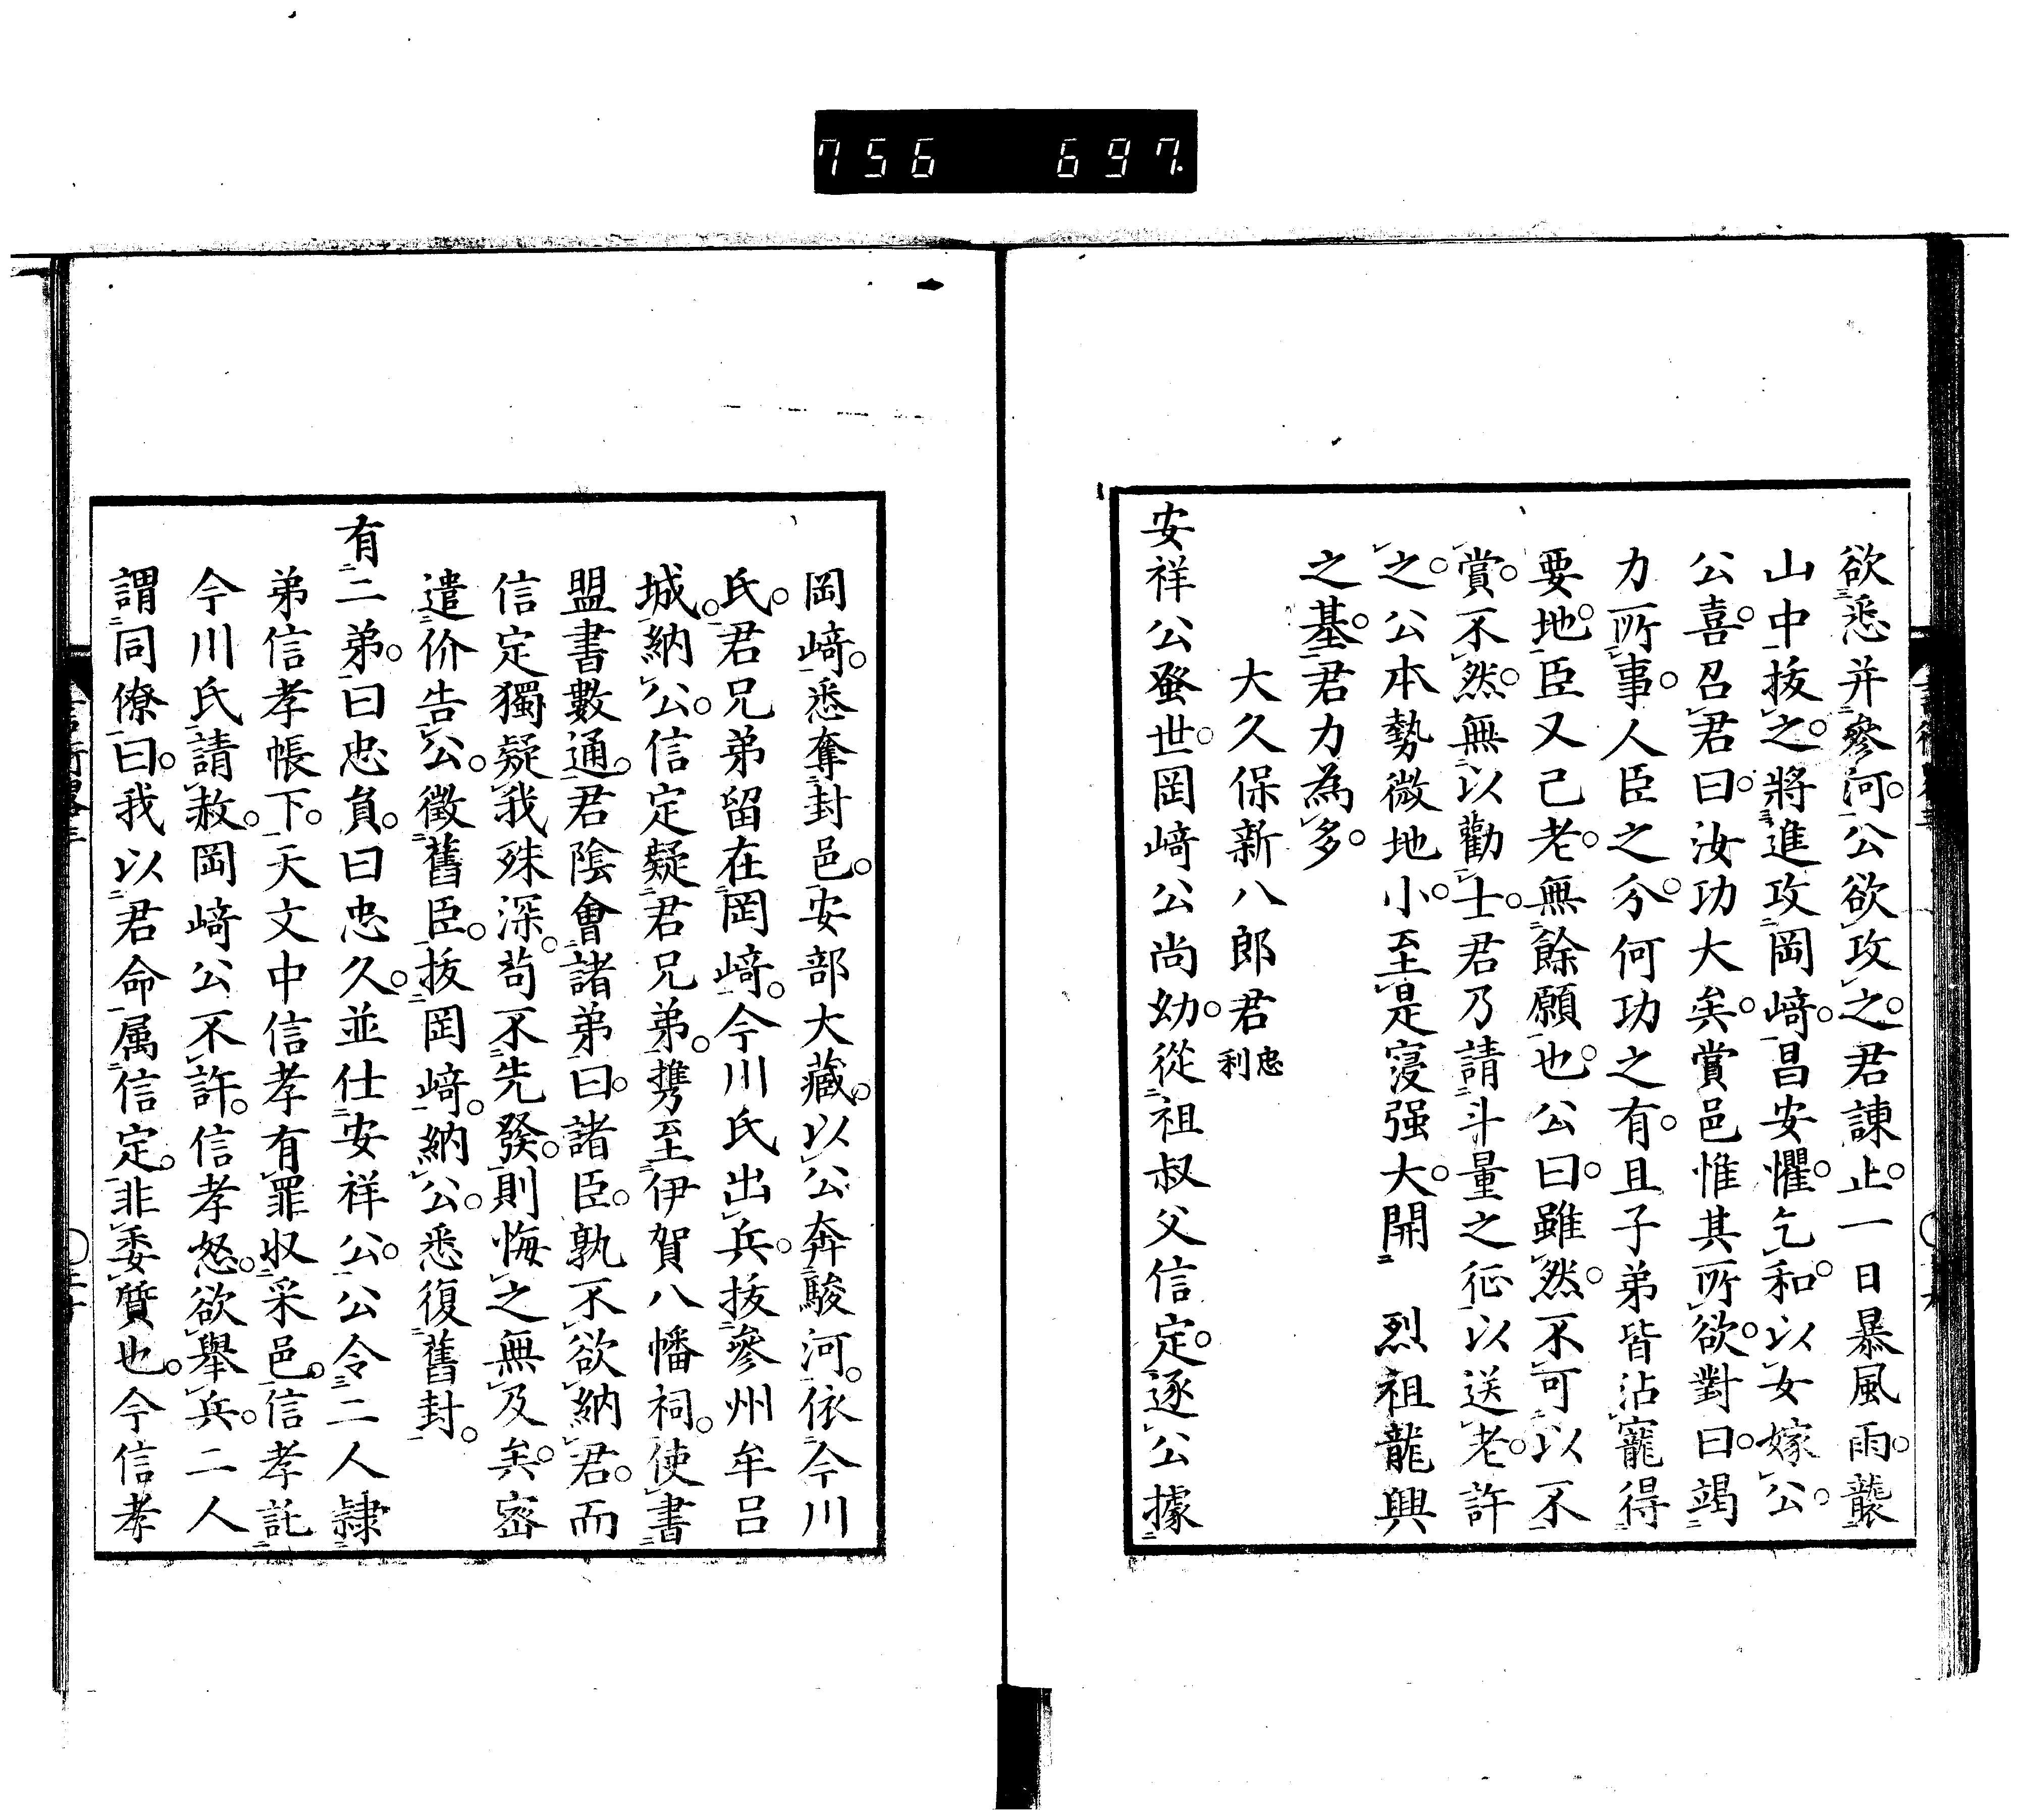 756 697.
欲悉并參河。公欲攻之。君諫止。一日暴風雨。襲
山中拔之。將進攻岡﨑。昌安懼。乞和。以女嫁公。
公喜。召君曰。汝功大矣。賞邑惟其所欲。對曰。竭
力所事。人臣之分。何功之有。且子弟皆沾寵得
要地。臣又已老。無餘願也。公曰。雖然。不可以不
賞。不然。無以勸士。君乃請斗量之征以送老。許
之。公本勢微地小。至是寖强大。開 烈祖龍興
之基。君力為多。
大久保新八郎君忠利
安祥公發世。岡﨑公尚幼。從祖叔父信定。逐公據
岡﨑。悉奪封邑。安部大藏。以公奔駿河。依今川
氏。君兄弟留在岡﨑。今川氏出兵。拔參州牟呂
城。納公。信定疑君兄弟。携至伊賀八幡祠。使書
盟書數通。君陰會諸弟曰。諸臣。孰不欲納君。而
信定獨疑我殊深。苟不先發。則悔之無及矣。密
遣价告公。徵舊臣。拔岡﨑。納公。悉復舊封。
有二弟。曰忠員。曰忠久。並仕安祥公。公令二人隸
弟信孝帳下。天文中信孝有罪収采邑。信孝託
今川氏請赦。岡﨑公不許。信孝怒。欲舉兵。二人
謂同僚曰。我以君命属信定。非委質也。今信孝